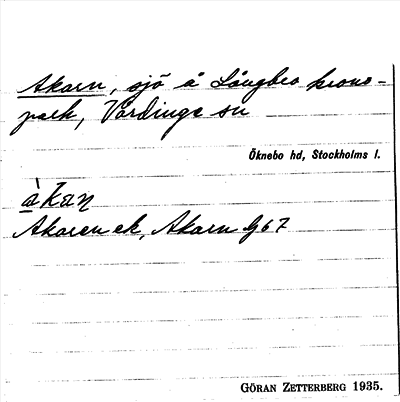 Akarn, sjö å Långbro krono-
park, Vårdinge sn
Öknebo hd, Stockholms l.
àkan
Akaren ek, Akarn G67
GÖRAN ZETTERBERG 1935.